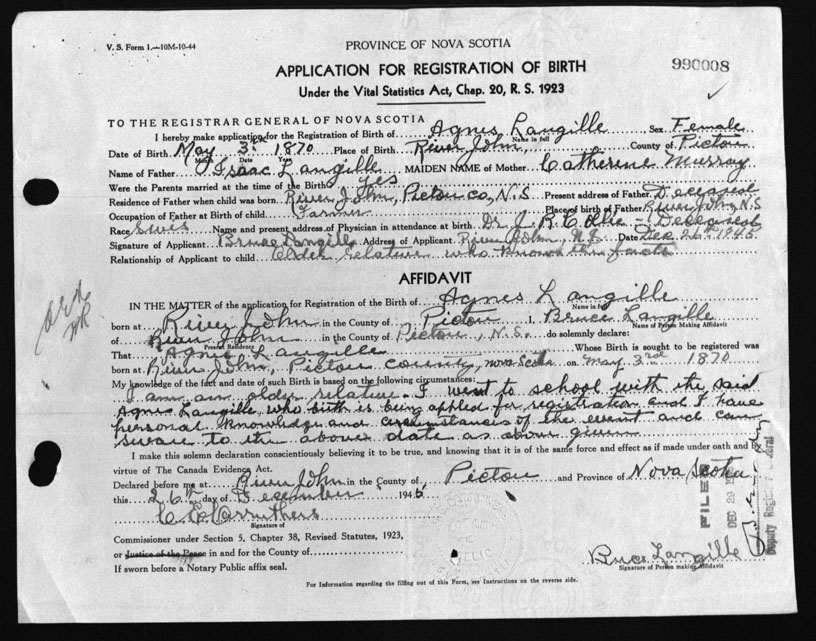 V. S. Form 1.—10M-10-44
PROVINCE OF NOVA SCOTIA
990008
APPLICATION FOR REGISTRATION OF BIRTH
Under the Vital Statistics Act, Chap. 20, R. S. 1923
TO THE REGISTRAR GENERAL OF NOVA SCOTIA
I hereby make application for the Registration of Birth of Agnes Langille Sex Female
Name in full
Date of Birth May 3rd 1870 Place of Birth River John, County of Pictou
Month Date Year
Name of Father Isaac Langille MAIDEN NAME of Mother Catherene Murray
Were the Parents married at the time of the Birth yes
Residence of Father when child was born River John, Pictou Co, N.S Present address of Father Deceased
Occupation of Father at Birth of child Farmer Place of birth of Father River John, N.S
Race Swis Name and present address of Physician in attendance at birth Dr. J. R. Collie - Deceased
Signature of Applicant Bruce Langille Address of Applicant River John, N.S. Date Dec 26th 1945
Relationship of Applicant to child Older Relative who knows the facts
AFFIDAVIT
IN THE MATTER of the application for Registration of the Birth of Agnes Langille
Name in full
born at River John in the County of Pictou I, Bruce Langille
Name of Person Making Affidavit
of River John in the County of Pictou, N.S. do solemnly declare:
Present Residence
That Agnes Langille Whose Birth is sought to be registered was
born at River John, Pictou County, Nova Scotia on May 3rd 1870
My knowledge of the fact and date of such Birth is based on the following circumstances:
I am an older relative. I went to school with the said
Agnes Langille, who birth is being applied for registration and I have
personal knowledge and circumstances of the event and can
swear to the above date as above given
I make this solemn declaration conscientiously believing it to be true, and knowing that it is of the same force and effect as if made under oath and by
virtue of The Canada Evidence Act.
Declared before me at River John in the County of Pictou and Province of Nova Scotia
this 26th day of December 1945
C. E. Carruthers
Signature of
Commissioner under Section 5, Chapter 38, Revised Statutes, 1923,
or Justice of the Peace in and for the County of
If sworn before a Notary Public affix seal.
FILED
DEC 29
Deputy Registrar General
Bruce Langille
Signature of Person making Affidavit
For Information regarding the filling out of this Form, see Instructions on the reverse side.